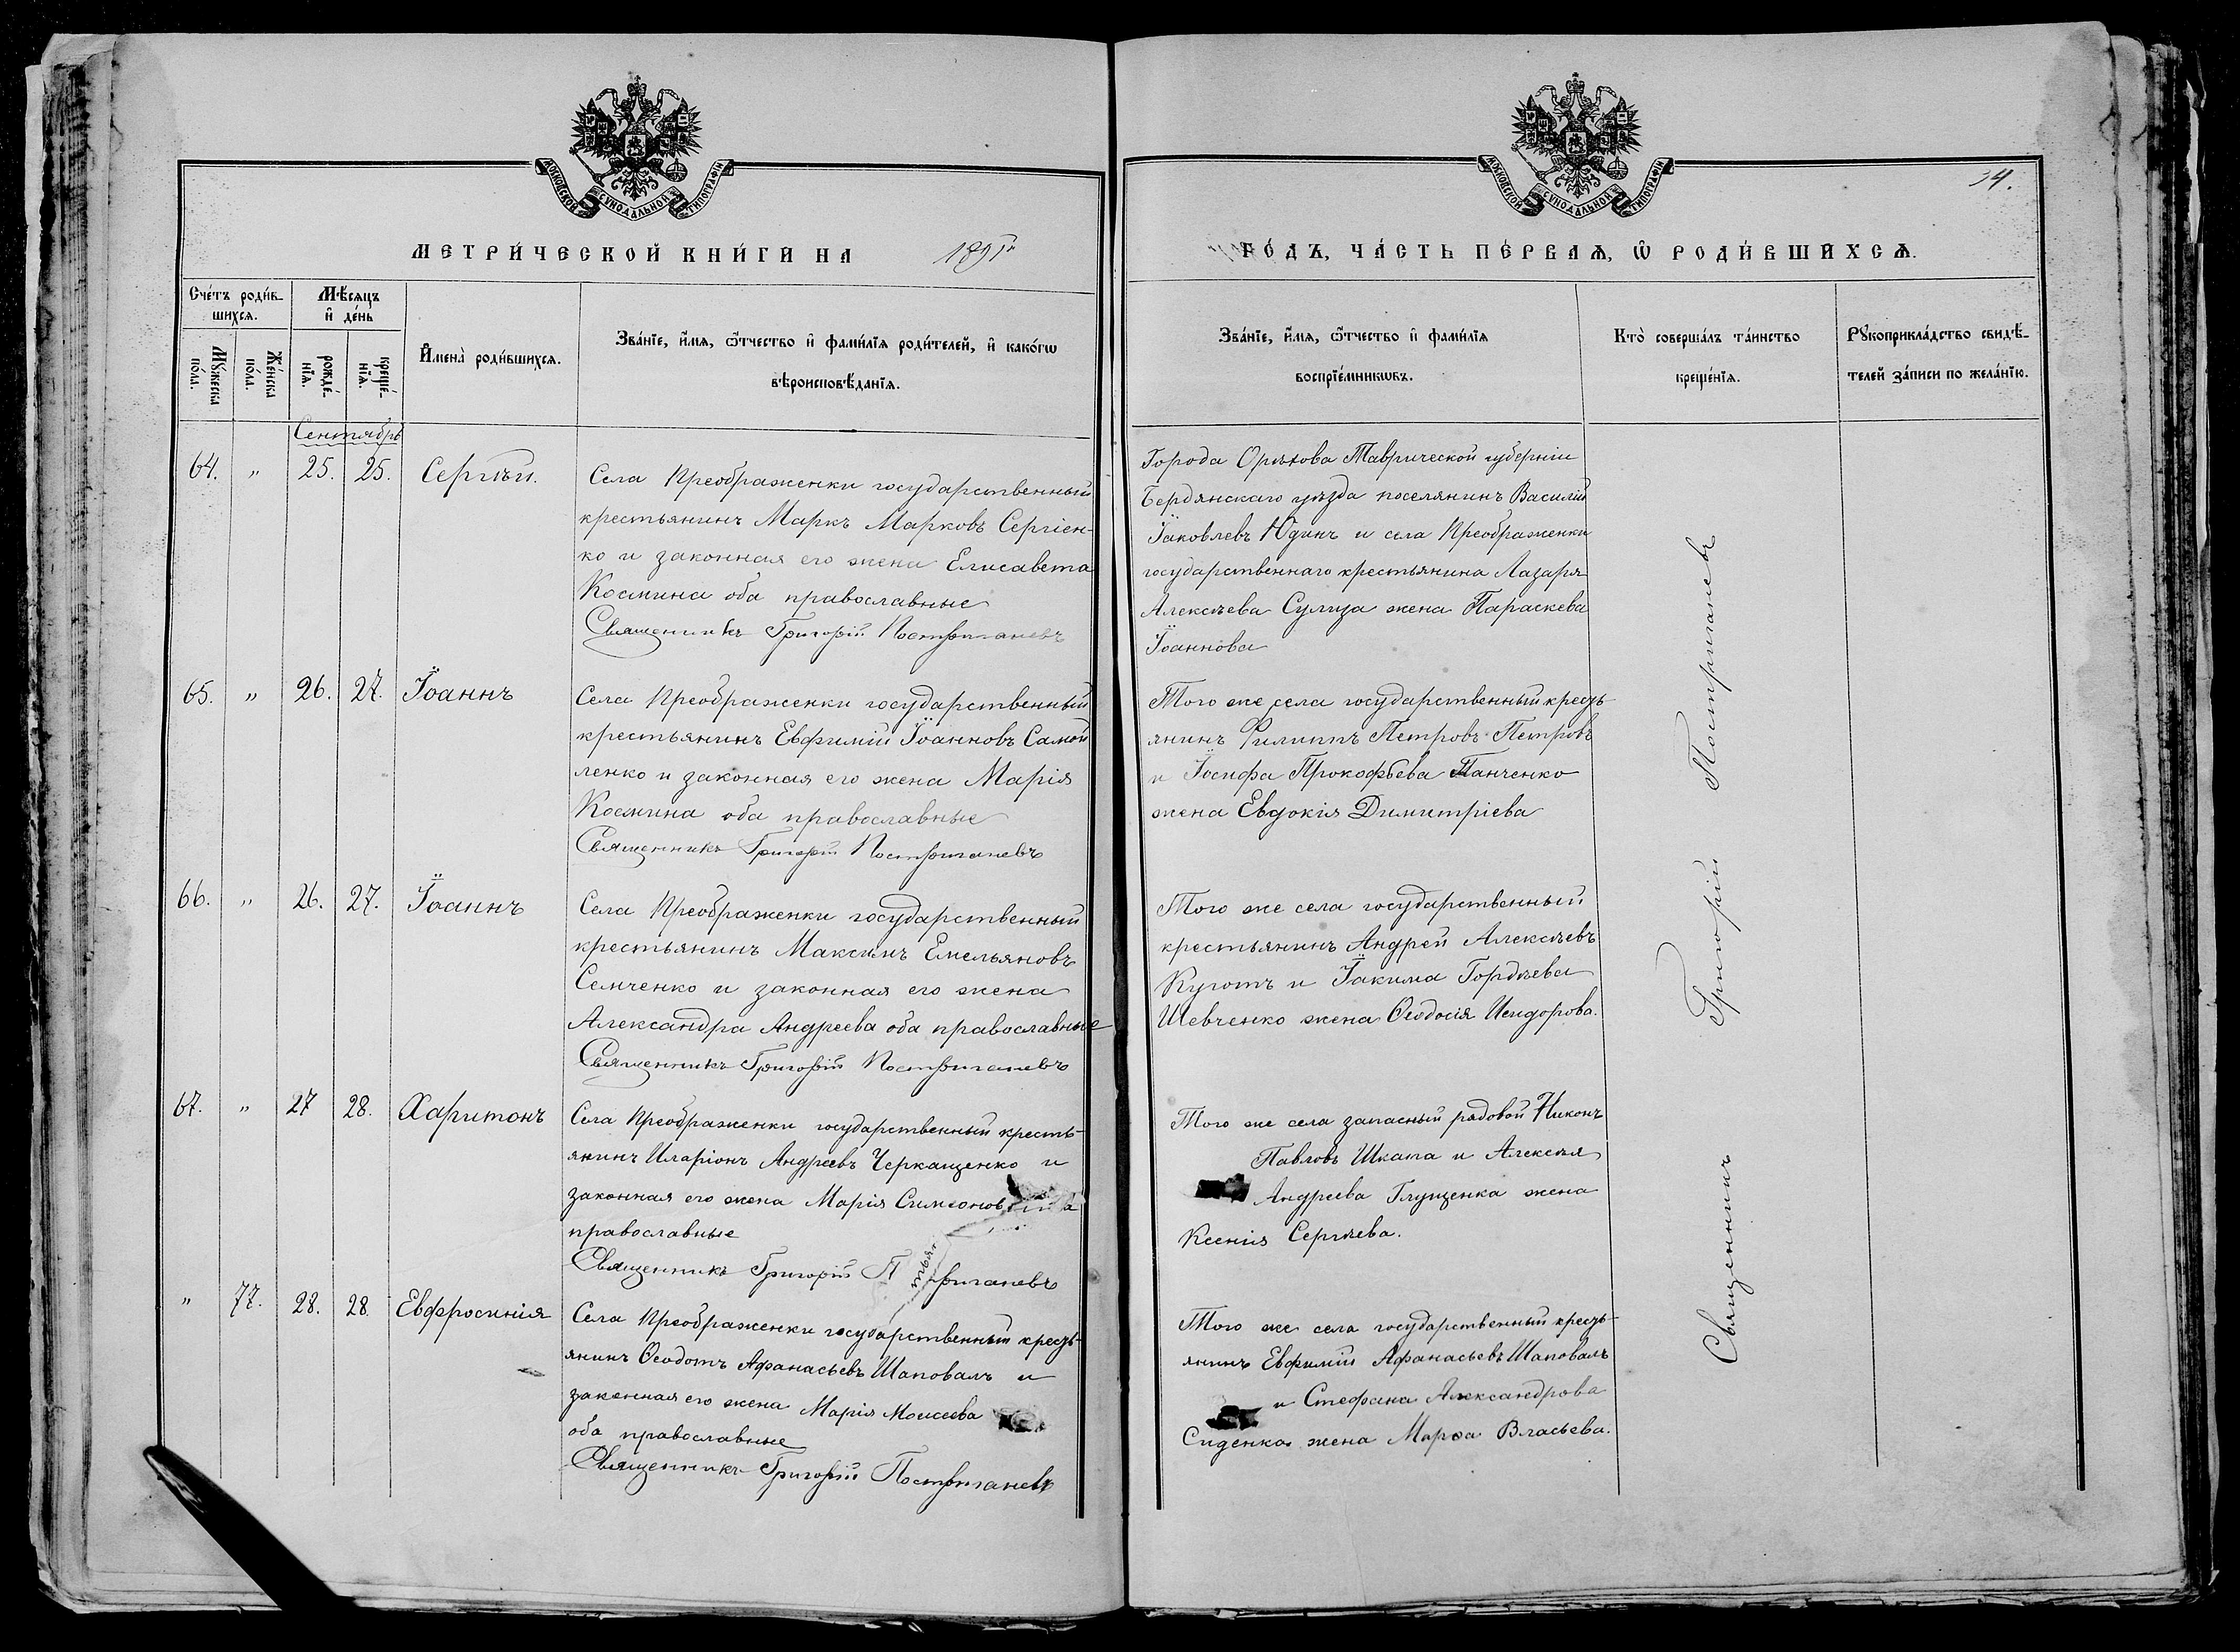 МОСКОВСКОЙ СѴНОДАЛЬНОЙ ТИПОГРАФІИ
МЕТРИ́ЧЕСКОЙ КНИ́ГИ НА 1891й
Сче́тъ роди́в-
шихся.
Мѣ́сяцъ
и҆ де́нь
Мꙋ́жеска
по́ла.
Же́нска
по́ла.
рожде́-
нїѧ.
креще́-
нїѧ.
И҆мена̀ роди́вшихся.
Зва́нїе, и҆́мѧ, ѻ҆́тчество и҆ фами́лїѧ роди́телей, и҆ како́гѡ
вѣроисповѣ́данїѧ.
Сентябрь
64. " 25. 25. Сергѣй.
Села Преображенки государственный
крестьянинъ Маркъ Марковъ Сергіен-
ко и законная его жена Елисавета
Космина оба православные
Священникъ Григорій Постриганевъ
65. " 26. 27. Іоаннъ
Села Преображенки государственный
крестьянинъ Евфимій Іоанновъ Самой
ленко и законная его жена Марія
Космина оба православные
Священникъ Григорій Постриганевъ
66. " 26. 27. Іоаннъ
Села Преображенки государственный
крестьянинъ Максимъ Емельяновъ
Семченко и законная его жена
Александра Андреева оба православные
Священникъ Григорій Постриганевъ
67. " 27 28. Харитонъ
Села Преображенки государственный кресть-
янинъ Иларіонъ Андреевъ Черкащенко и
законная его жена Марія Симеонов
православные
Священникъ Григорій П триганевъ
" 77. 28. 28. Евфросинія
Села Преображенки государственный кресть-
янинъ Ѳеодотъ Афанасьевъ Шаповалъ и
законная его жена Марія Моисеева
оба православные
Священникъ Григорій Постриганевъ
МОСКОВСКОЙ СѴНОДАЛЬНОЙ ТИПОГРАФІИ
34.
ГО́ДЪ, ЧА́СТЬ ПЕ́РВАѦ, Ѡ҆ РОДИ́ВШИХСѦ.
Зва́нїе, и҆́мѧ, ѻ҆́тчество и҆ фами́лїѧ
воспрїе́мникѡвъ.
Кто̀ соверша́лъ та́инство
креще́нїѧ.
Рꙋкоприкла́дство свидѣ́-
телей за́писи по жела́нїю.
Города Орѣхова Таврической губерніи
Бердянскаго уѣзда поселянинъ Василій
Іаковлевъ Юдинъ и села Преображенки
государственнаго крестьянина Лазаря
Алексѣева Сулиза жена Параскева
Іоаннова
Того же села государственный кресть-
янинъ Филиппъ Петровъ Петровъ
и Іосифа Прокофьева Панченко
жена Евдокія Димитріева
Того же села государственный
крестьянинъ Андрей Алексѣевъ
Куготъ и Іакима Гордѣева
Шевченко жена Ѳеодосія Исидорова.
Того же села запасный рядовой Никонъ
Павловъ Шкапа и Алексѣя
Андреева Глущенка жена
Ксенія Сергѣева.
Того же села государственный кресть-
янинъ Евфимій Афанасьевъ Шаповалъ
и Стефана Александрова
Сиденка жена Марѳа Власьева.
Священникъ Григорій Постриганевъ